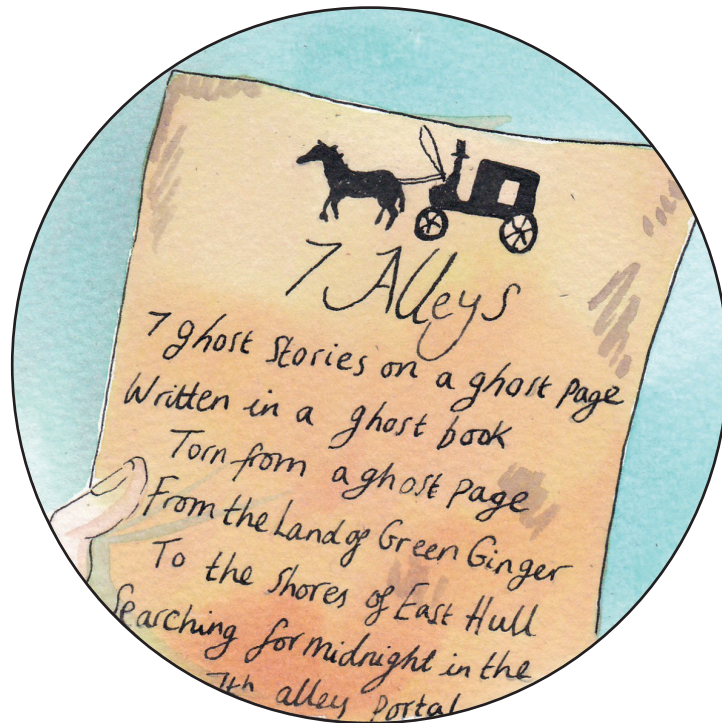 7 Alleys
7 ghost stories on a ghost page
Written in a ghost book
Torn from a ghost page
From the Land of Green Ginger
To the shores of East Hull
Searching for midnight in the
7th alley portal